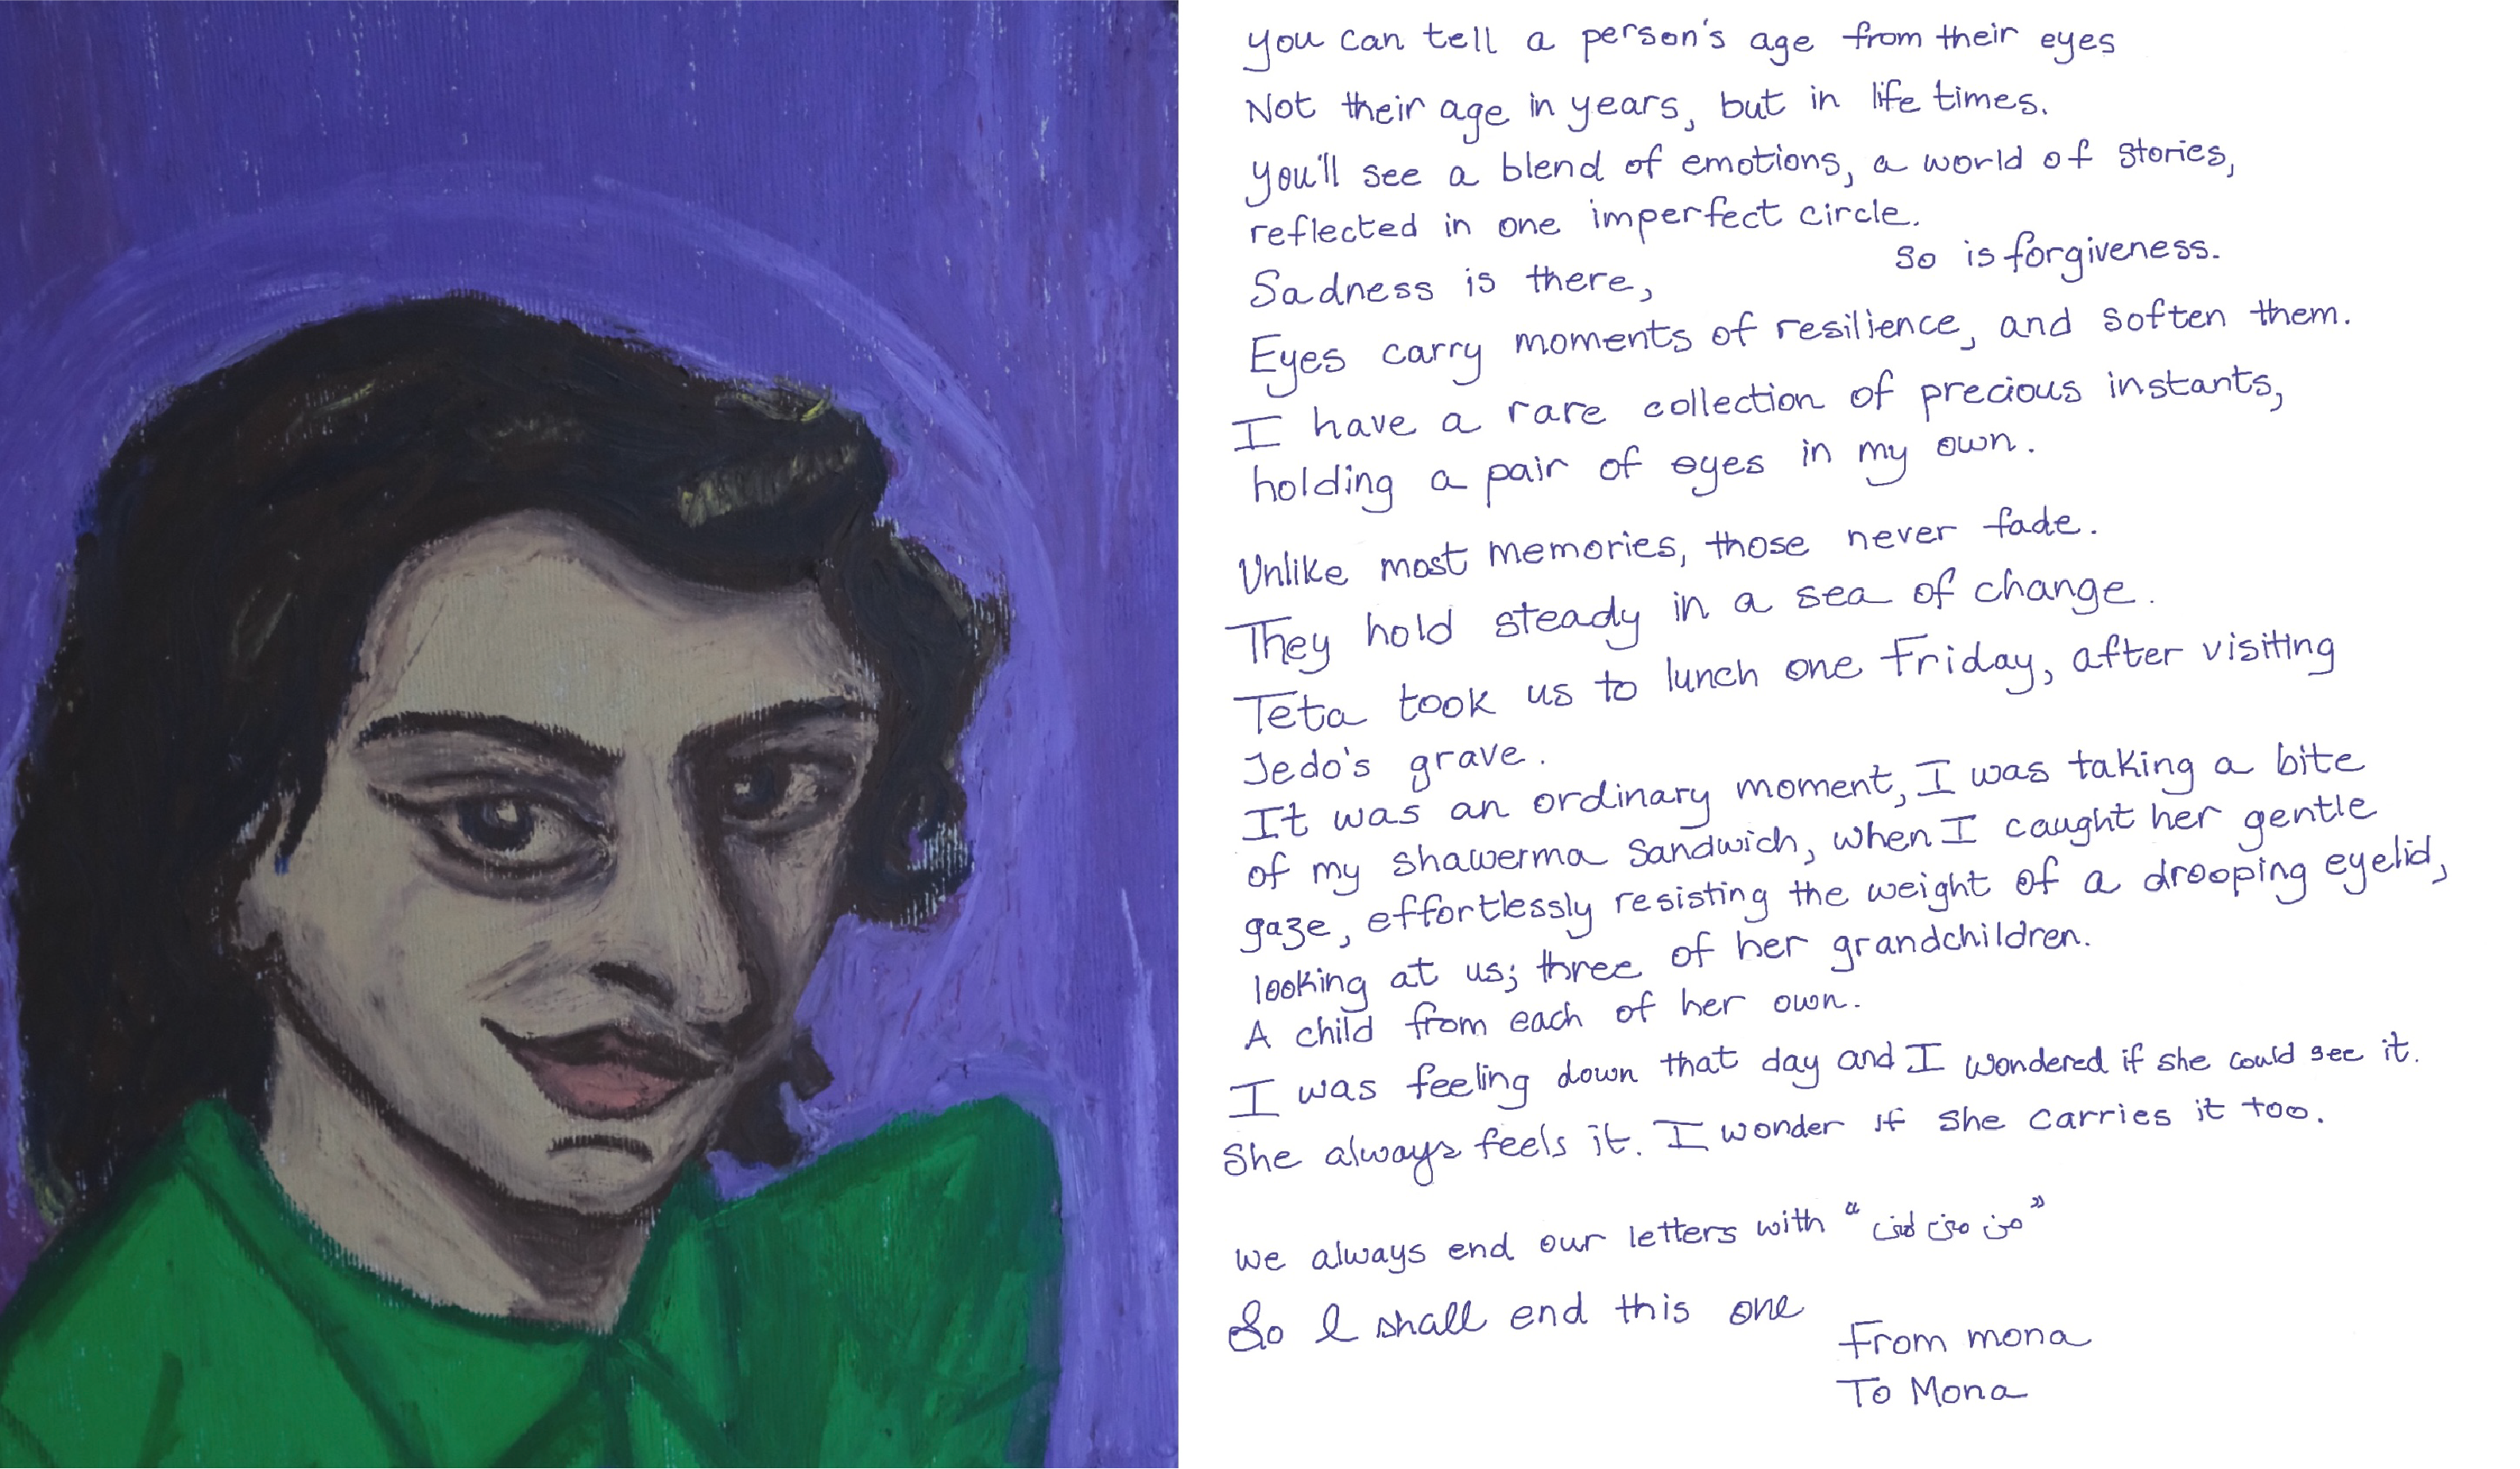 you can tell a person's age from their eyes
Not their age in years, but in life times.
you'll see a blend of emotions, a world of stories,
reflected in one imperfect circle.
Sadness is there, so is forgiveness.
Eyes carry moments of resilience, and soften them.
I have a rare collection of precious instants,
holding a pair of eyes in my own.
Unlike most memories, those never fade.
They hold steady in a sea of change.
Teta took us to lunch one Friday, after visiting
Jedo's grave.
It was an ordinary moment, I was taking a bite
of my shawerma sandwich, when I caught her gentle
gaze, effortlessly resisting the weight of a drooping eyelid,
looking at us; three of her grandchildren.
A child from each of her own.
I was feeling down that day and I wondered if she could see it.
She always feels it. I wonder if she carries it too.
we always end our letters with “من منى لمنى”
So I shall end this one
From mona
To Mona